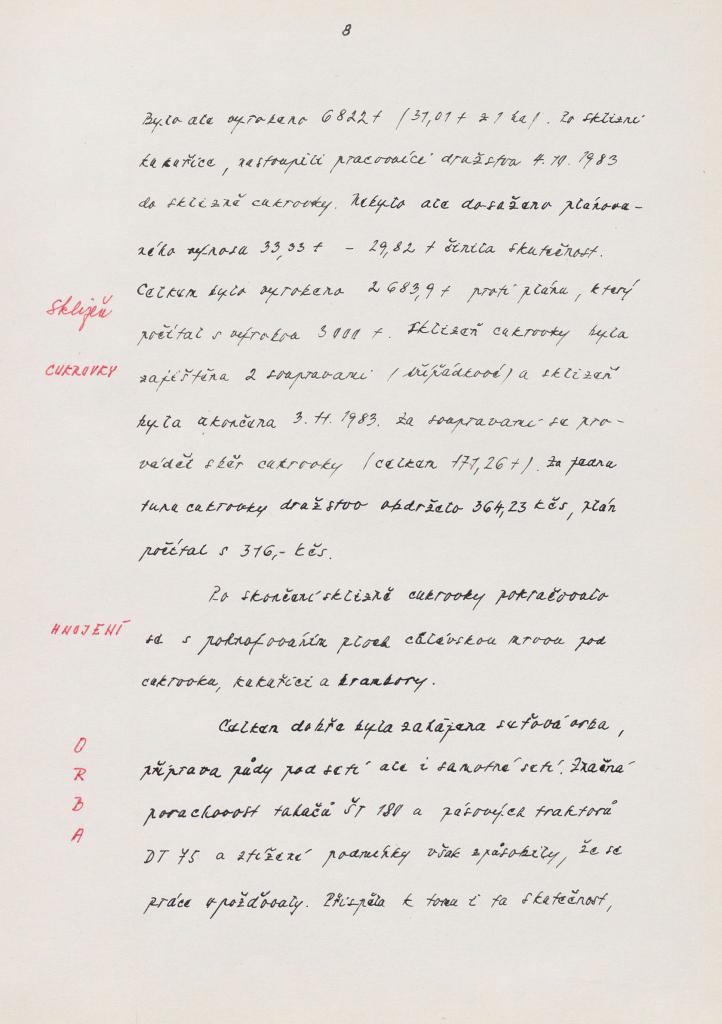 8
Bylo ale vyrobeno 6822 t (31,01 t z 1 ha). Po sklizni
kukuřice, nastoupili pracovníci družstva 4.10.1983
do sklizně cukrovky. Nebylo ale dosaženo pláno-
ného výnosu 33,33 t – 29,82 t činila skutečnost.
Celkem bylo vyrobeno 2 683,9 t proti plánu, který
Sklizeň
počítal s výrobou 3 000 t. Sklizeň cukrovky byla
CUKROVKY
zajištěna 2 soupravami (třířádkové) a sklizeň
byla ukončena 3.11.1983. Za soupravami se pro-
váděl sběr cukrovky (celkem 171,26 t). Za jednu
tunu cukrovky družstvo obdrželo 364,23 Kčs, plán
počítal s 316,- Kčs.
Po skončení sklizně cukrovky pokračovalo
HNOJENÍ
se s pohnojováním ploch chlévskou mrvou pod
cukrovku, kukuřici a brambory.
Celkem dobře byla zahájena seťová orba,
O
R
B
A
příprava půdy pod setí ale i samotné setí. Značná
poruchovost tahačů ŠT 180 a pásových traktorů
DT 75 a ztížené podmínky však způsobily, že se
práce opožďovaly. Přispěla k tomu i ta skutečnost,